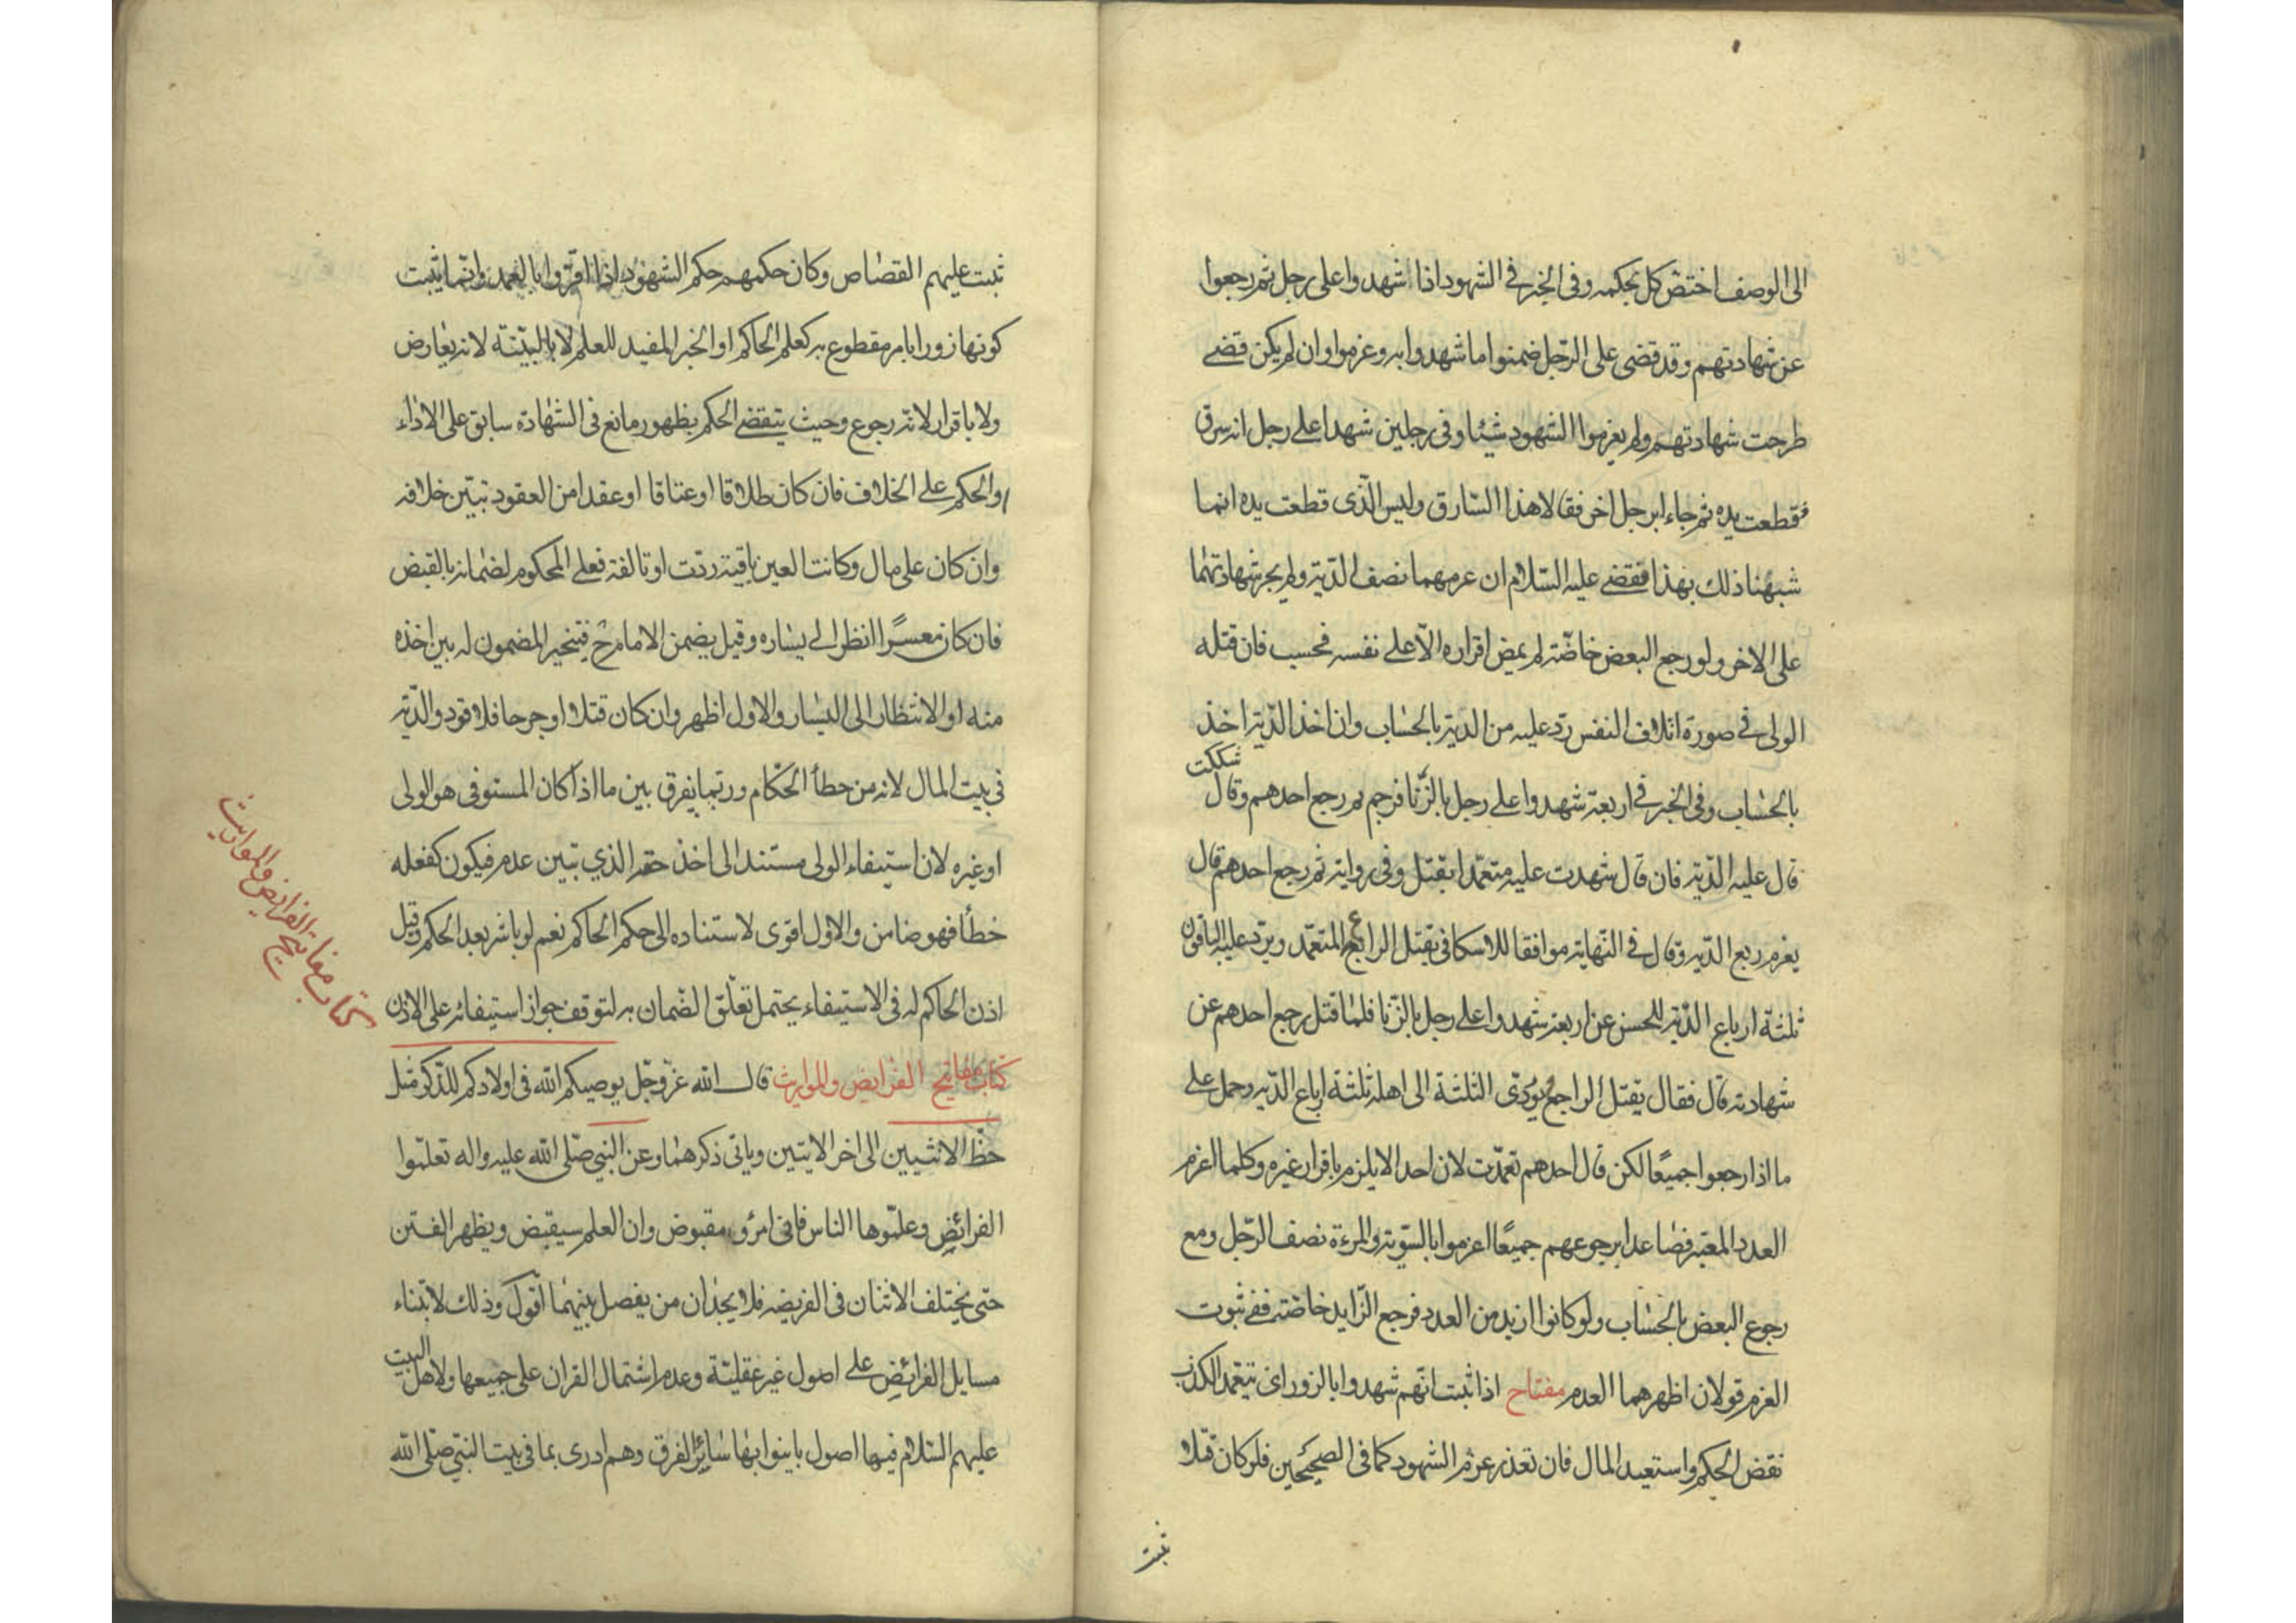 الى الوصف اختص كل بحكمه وفى الخبر فى الشهود اذا شهدوا على رجل ثم رجعوا
عن شهادتهم وقد قضى على الرجل ضمنوا ما شهدوا به وغرموا وان لم يكن قضى
طرحت شهادتهم ولم يغرموا الشهود شيئا وفى رجلين شهدا على رجل انه سرق
فقطعت يده ثم جاءا برجل اخر فقالا هذا السارق وليس الّذى قطعت يده انما
شبهنا ذلك بهذا فقضى عليه السّلام ان غرمهما نصف الدّية ولم يجز شهادتهما
على الاخر ولو رجع البعض خاصّة لم يمض اقراره الّا على نفسه فحسب فان قتله
الولى فى صورة اتلاف النفس ردّ عليه من الدية بالحساب وان اخذ الدّية اخذ
بالحساب وفى الخبر فى اربعة شهدوا على رجل بالزّنا فرجم ثم رجع احدهم وقال شككت
قال عليه الدّية فان قال شهدت عليه متعمّدا يقتل وفى رواية ثم رجع احدهم قال
يغرم ربع الدّية وقال فى النّهاية موافقا للاسكافى يقتل الراجع المتعمّد ويردّ عليه الباقون
ثلثة ارباع الدّية للحسن عن اربعة شهدوا على رجل بالزّنا فلمّا قتل رجع احدهم عن
شهادته قال فقال يقتل الراجع ويؤدّى الثلثة الى اهله ثلثة ارباع الدّية وحمل على
ما اذا رجعوا جميعًا لكن قال احدهم تعمّدت لان احدا لا يلزم باقرار غيره وكلما اغرم
العدد المعتبر فصاعدا برجوعهم جميعًا اغرموا بالسّوية والمرءة نصف الرّجل ومع
رجوع البعض بالحساب ولو كانوا ازيد من العدد فرجع الزّايد خاصّة ففى ثبوت
الغرم قولان اظهرهما العدم مفتاح اذا ثبت انّهم شهدوا بالزور اى بتعمّد الكذب
نقض الحكم واستعيد المال فان تعذر غرم الشهود كما فى الصحيحين فلو كان قتلا
ثبت
ثبت عليهم القصاص وكان حكمهم حكم الشهود اذا اقرّوا بالعمد وانّما يثبت
كونها زورا بامر مقطوع به كعلم الحاكم او الخبر المفيد للعلم لا بالبيّنة لانه تعارض
ولا باقرار لانّه رجوع وحيث ينتقض الحكم بظهور مانع فى الشهادة سابق على الاداء
والحكم على الخلاف فان كان طلاقا او عتاقا او عقدا من العقود تبيّن خلافه
وان كان على مال وكانت العين باقية ردّت او تالفة فعلى المحكوم له ضمانه بالقبض
فان كان معسرًا انظر الى يساره وقيل يضمن الامام ح فيتخير المضمون له بين اخذه
منه او الانتظار الى اليسار والاول اظهر وان كان قتلا او جرحا فلا قود والدّية
فى بيت المال لانه من خطأ الحكام وربّما يفرق بين ما اذا كان المستوفى هو الولى
او غيره لان استيفاء الولى مستند الى اخذ حقه الذي تبين عدمه فيكون كفعله
خطأ فهو ضامن والاوّل اقوى لاستناده الى حكم الحاكم نعم لو باشر بعد الحكم وقبل
اذن الحاكم له فى الاستيفاء يحتمل تعلّق الضّمان به لتوقف جواز استيفائه على الاذن
كتاب مفاتيح الفرايض والمواريث قال الله عزّ وجلّ يوصيكم الله فى اولادكم للذّكر مثل
حظّ الانثيين الى اخر الايتين وياتى ذكرهما وعن النبي صلّى الله عليه واله تعلّموا
الفرائض وعلّموها الناس فانى امرؤ مقبوض وان العلم سيقبض ويظهر الفتن
حتى يختلف الاثنان فى الفريضة فلا يجدان من يفصل بينهما اقول وذلك لابتناء
مسايل الفرائض على اصول غير عقليّة وعدم اشتمال القران على جميعها ولاهل البيت
عليهم السّلام فيها اصول باينوا بها سائر الفرق وهم ادرى بما فى بيت النبّي صلّى الله
كتاب مفاتيح الفرايض والمواريث